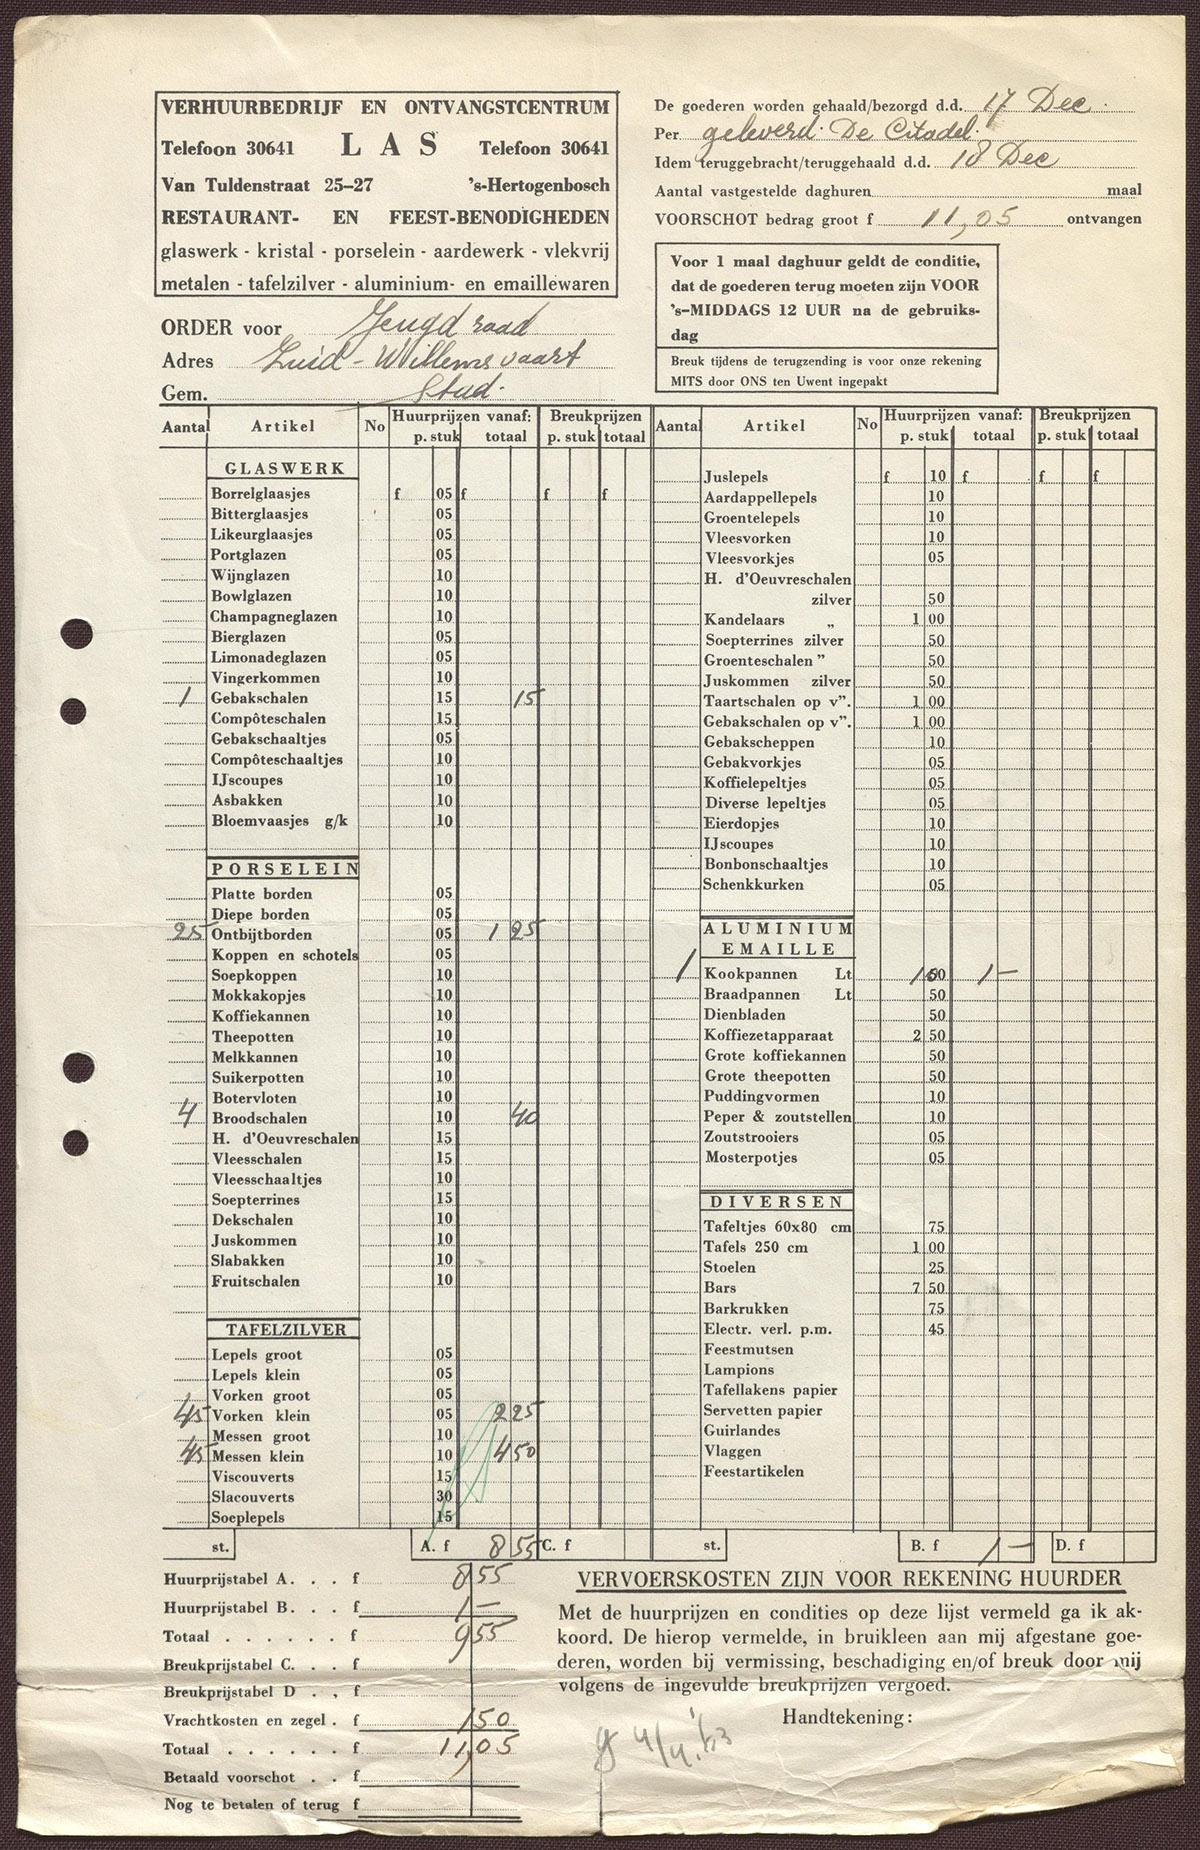 VERHUURBEDRIJF EN ONTVANGSTCENTRUM
Telefoon 30641 LAS Telefoon 30641
Van Tuldenstraat 25-27 's-Hertogenbosch
RESTAURANT- EN FEEST-BENODIGHEDEN
glaswerk - kristal - porselein - aardewerk - vlekvrij
metalen - tafelzilver - aluminium- en emaillewaren
De goederen worden gehaald/bezorgd d.d. 17 Dec.
Per geleverd. De Citadel.
Idem teruggebracht/teruggehaald d.d. 18 Dec
Aantal vastgestelde daghuren maal
VOORSCHOT bedrag groot f 11,05 ontvangen
Voor 1 maal daghuur geldt de conditie,
dat de goederen terug moeten zijn VOOR
's-MIDDAGS 12 UUR na de gebruiks-
dag
Breuk tijdens de terugzending is voor onze rekening
MITS door ONS ten Uwent ingepakt
ORDER voor Jeugdraad
Adres Zuid-Willemsvaart
Gem. Stad.
Aantal Artikel No Huurprijzen vanaf: Breukprijzen
p. stuk totaal p. stuk totaal
GLASWERK
Borrelglaasjes f 05 f f f
Bitterglaasjes 05
Likeurglaasjes 05
Portglazen 05
Wijnglazen 10
Bowlglazen 10
Champagneglazen 10
Bierglazen 05
Limonadeglazen 05
Vingerkommen 10
1 Gebakschalen 15 15
Compôteschalen 15
Gebakschaaltjes 05
Compôteschaaltjes 10
IJscoupes 10
Asbakken 10
Bloemvaasjes g/k 10
PORSELEIN
Platte borden 05
Diepe borden 05
25 Ontbijtborden 05 1 25
Koppen en schotels 05
Soepkoppen 10
Mokkakopjes 10
Koffiekannen 10
Theepotten 10
Melkkannen 10
Suikerpotten 10
Botervloten 10
4 Broodschalen 10 40
H. d'Oeuvreschalen 15
Vleesschalen 15
Vleesschaaltjes 10
Soepterrines 15
Dekschalen 10
Juskommen 10
Slabakken 10
Fruitschalen 10
TAFELZILVER
Lepels groot 05
Lepels klein 05
Vorken groot 05
45 Vorken klein 05 2 25
Messen groot 10
45 Messen klein 10 4 50
Viscouverts 15
Slacouverts 30
Soeplepels 15
st. A. f 8 55 C. f
Aantal Artikel No Huurprijzen vanaf: Breukprijzen
p. stuk totaal p. stuk totaal
Juslepels f 10 f f f
Aardappellepels 10
Groentelepels 10
Vleesvorken 10
Vleesvorkjes 05
H. d'Oeuvreschalen
zilver 50
Kandelaars „ 1 00
Soepterrines zilver 50
Groenteschalen " 50
Juskommen zilver 50
Taartschalen op v". 1 00
Gebakschalen op v". 1 00
Gebakscheppen 10
Gebakvorkjes 05
Koffielepeltjes 05
Diverse lepeltjes 05
Eierdopjes 10
IJscoupes 10
Bonbonschaaltjes 10
Schenkkurken 05
ALUMINIUM
EMAILLE
1 Kookpannen Lt 1 1-
Braadpannen Lt 50
Dienbladen 50
Koffiezetapparaat 2 50
Grote koffiekannen 50
Grote theepotten 50
Puddingvormen 10
Peper & zoutstellen 10
Zoutstrooiers 05
Mosterpotjes 05
DIVERSEN
Tafeltjes 60x80 cm 75
Tafels 250 cm 1 00
Stoelen 25
Bars 7 50
Barkrukken 75
Electr. verl. p.m. 45
Feestmutsen
Lampions
Tafellakens papier
Servetten papier
Guirlandes
Vlaggen
Feestartikelen
st. B. f 1- D. f
Huurprijstabel A. . . f 8 55
Huurprijstabel B. . . f 1-
Totaal . . . . . . f 9 55
Breukprijstabel C. . . f
Breukprijstabel D . , f
Vrachtkosten en zegel . f 1 50
Totaal . . . . . . f 11,05
Betaald voorschot . . f
Nog te betalen of terug f
VERVOERSKOSTEN ZIJN VOOR REKENING HUURDER
Met de huurprijzen en condities op deze lijst vermeld ga ik ak-
koord. De hierop vermelde, in bruikleen aan mij afgestane goe-
deren, worden bij vermissing, beschadiging en/of breuk door mij
volgens de ingevulde breukprijzen vergoed.
Handtekening: